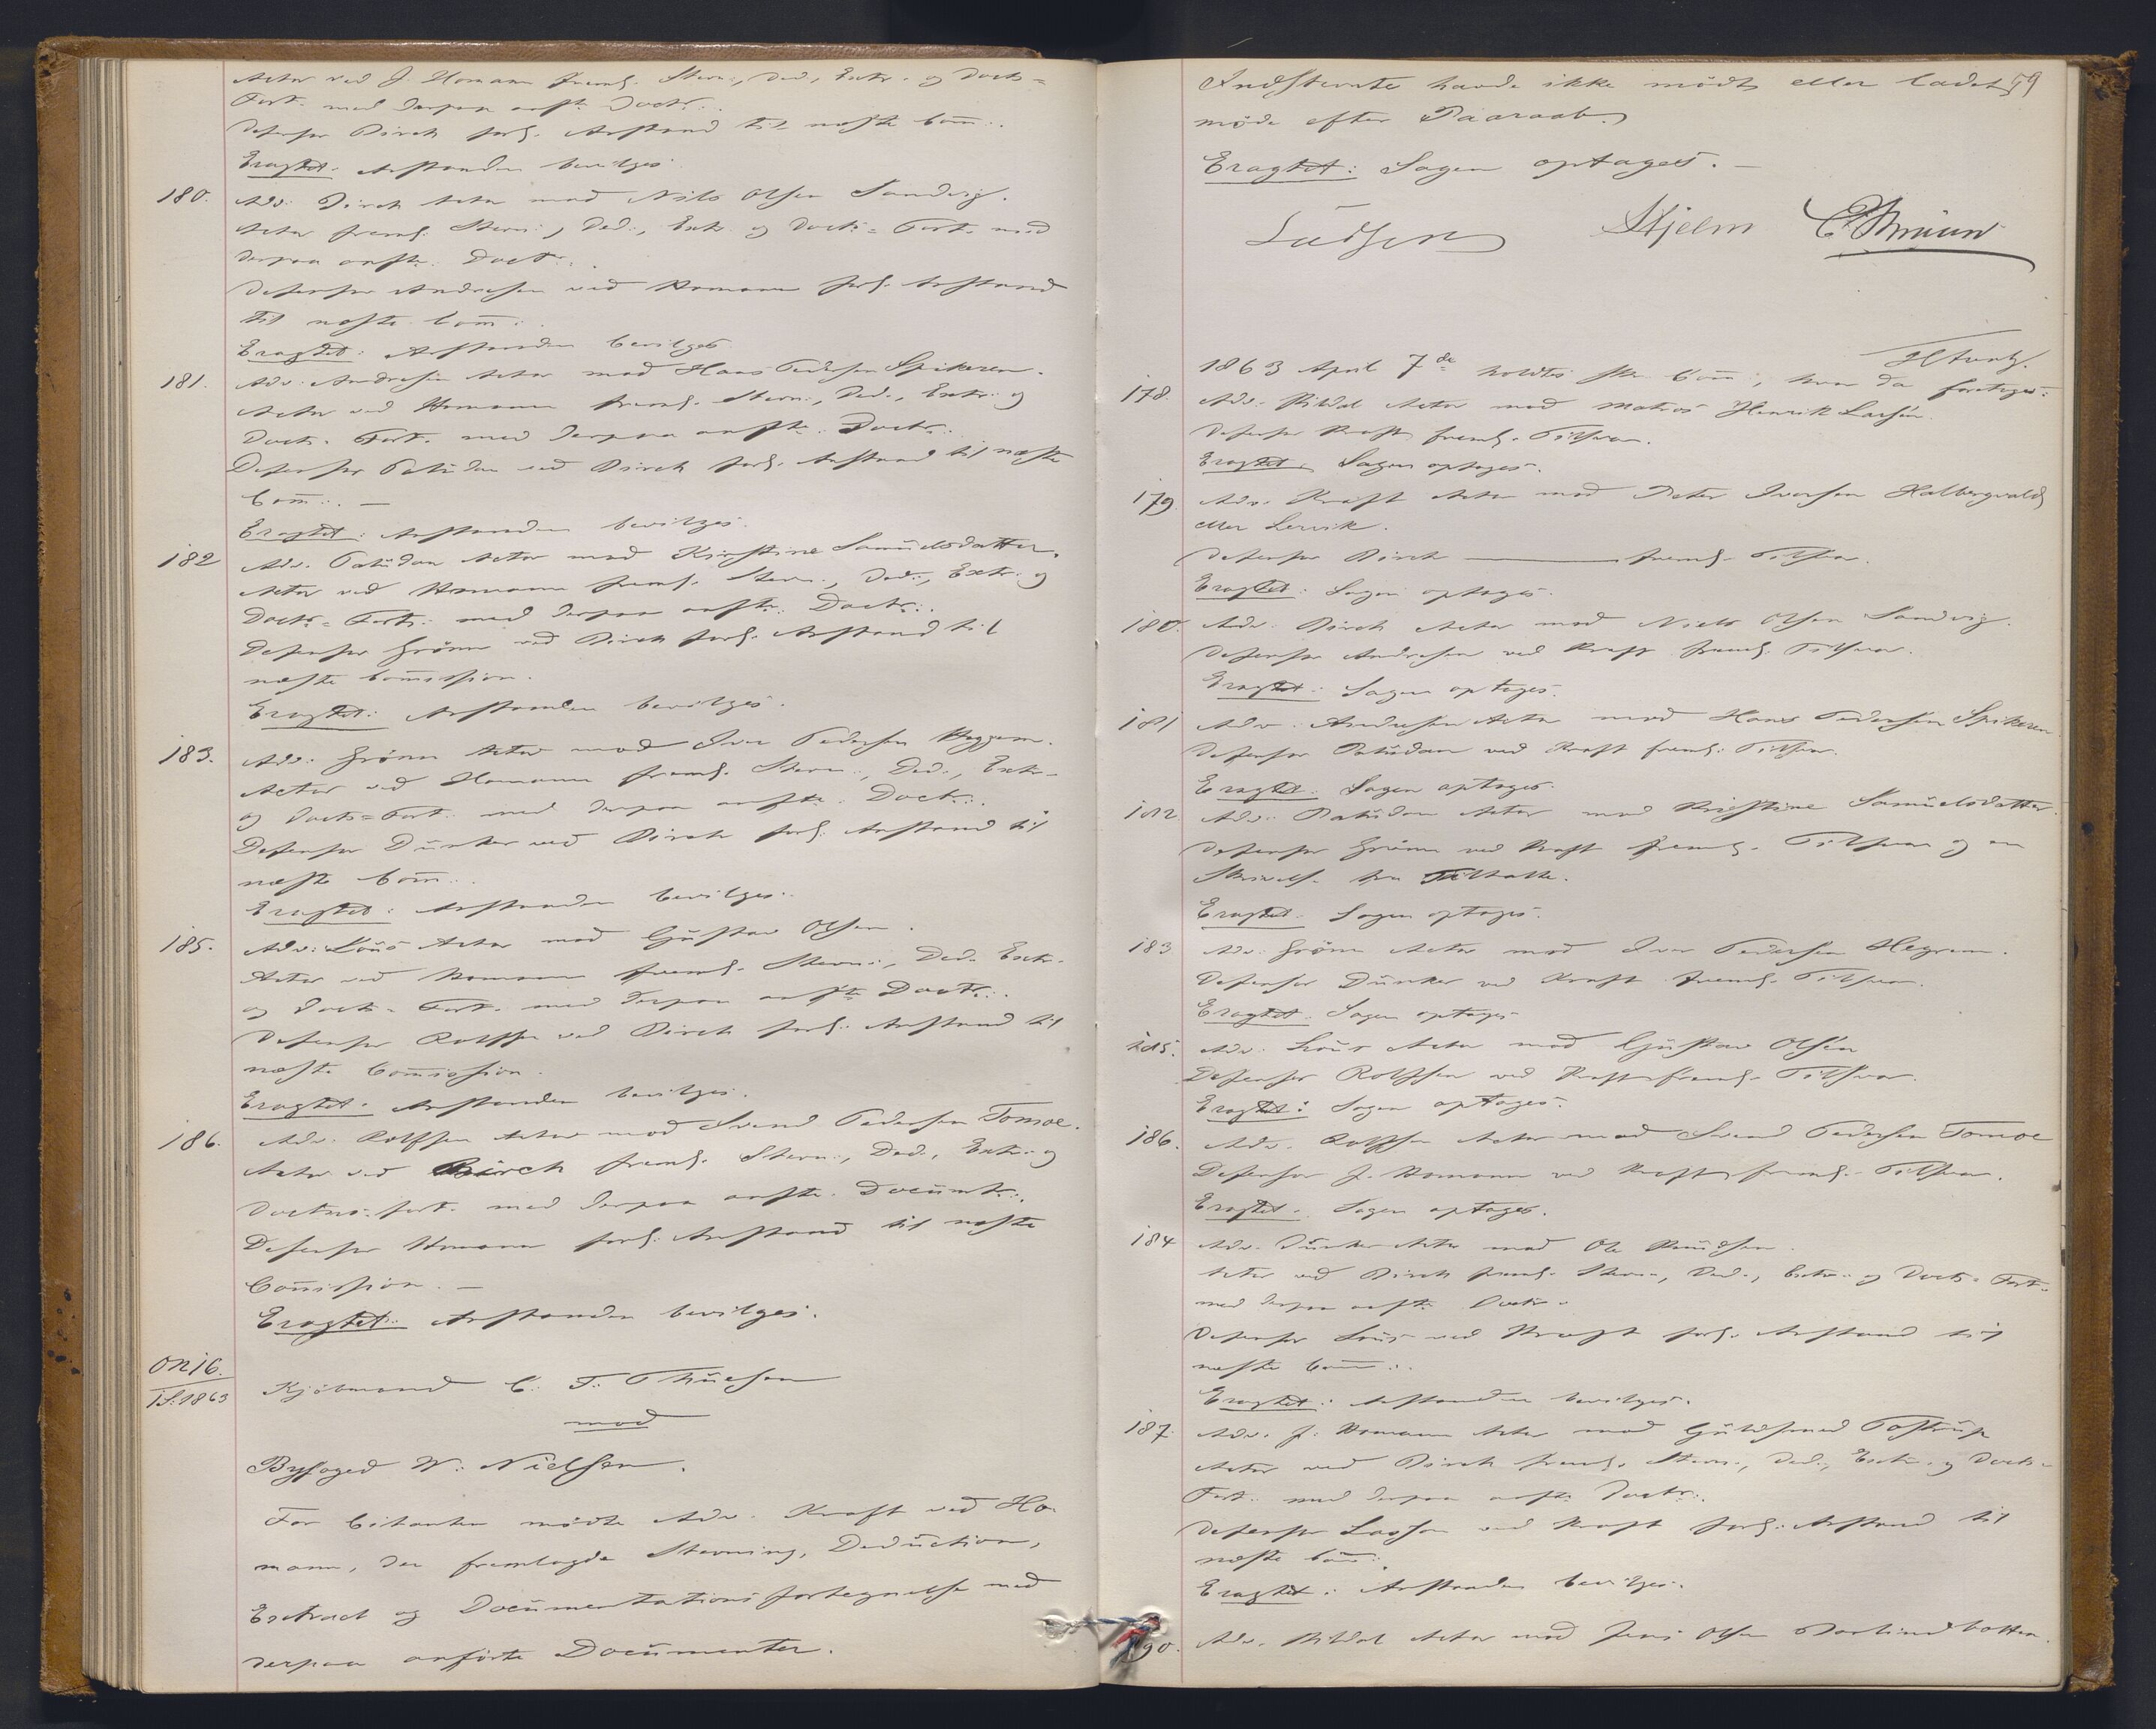 Actor ved J. Homann freml. Stevn., Ded., Extr. og Docts=
Fort. med derpaa anfte. Doct.:.
Defensor Birch forl. Anstand til næste Comm:.
Eragtet: Anstanden bevilges.
180. Adv: Birch Actor mod Nils Olsen Sandvig.
Actor freml. Stevn:, Ded:, Extr. og Docts= Fort. med
derpaa anfte. Doct:.
Defensor Andresen ved Homann forl. Anstand
til næste Comm:.
Eragtet: Anstanden bevilges.
181. Adv: Andresen Actor mod Hans Pedersen Spikeren.
Actor ved Homann freml. Stevn:, Ded., Extr. og
Docts. Fort. med derpaa anfte. Doctr:.
Defensor Paludan ved Birch forl. Anstand til næste
Comm:. —
Eragtet: Anstanden bevilges.
182 Adv. Paludan Actor mod Kirstine Samuelsdatter.
Actor ved Homann freml. Stevn:, Ded:, Extr. og
Docts= Fort: med derpaa anfte. Doctr:.
Defensor Grönn ved Birch forl. Anstand til
næste Commission.
Eragtet: Anstanden bevilges.
183. Adv: Grönn Actor mod Iver Pedersen
Actor ved Homann freml. Stevn:, Ded., Extr.
og Docts= Fort. med derpaa anfte. Doct:.
Defensor Dunker ved Birch forl. Anstand til
næste Comm:.
Eragtet: Anstanden bevilges.
185. Adv: Lous Actor mod Gustav Olsen.
Actor ved Homann freml. Stevn:, Ded. Extr.
og Docts= Fort. med derpaa anfte. Doctr:.
Defensor Rolffsen ved Birch forl. Anstand til
næste Commission.
Eragtet: Anstanden bevilges.
186. Adv. Rolffsen Actor mod Svend Pedersen Tomoe.
Actor ved Birch freml. Stevn:, Ded., Extr. og
Doctns. fort. med derpaa anfte. Documtr:.
Defensor Homann forl. Anstand til næste
Commission. —
Eragtet: Anstanden bevilges.
On 16.
1S. 1863 Kjöbmand C. F. Thuesen
mod
Byfoged N: Nielsen.
For Citanten mödte Adv. Kraft ved Ho-
mann, der fremlagde Stevning, Deduction,
Extract og Documentationsfortegnelse med
derpaa anförte Documenter.
59
Indstevnte havde ikke mödt eller ladet
möde efter Paaraab.
Eragtet: Sagen optages. —
Hjelm
1863 April 7de holdtes Comm:, hvor da foretoges:
178. Adv. Rildal Actor mod Matros Henrik Larsen.
Defensor Kraft freml. Tilsvar.
Eragtet: Sagen optages.
179. Adv. Kraft Actor mod Peter Iversen Halbergvald
eller Lervik.
Defensor Birch — freml. Tilsvar.
Eragtet: Sagen optages.
180. Adv: Birch Actor mod Niels Olsen Sandvig.
Defensor Andresen ved Kraft freml. Tilsvar.
Eragtet: Sagen optages.
181 Adv. Andresen Actor mod Hans Pedersen Spikeren
Defensor Paludan ved Kraft freml. Tilsvar.
Eragtet: Sagen optages.
182 Adv: Paludan Actor mod Kirstine Samuelsdatter.
Defensor Grönn ved Kraft freml. Tilsvar og en
Skrivels. fra Tiltalte.
Eragtet: Sagen optages.
183 Adv: Grönn Actor mod Iver Pedersen Hegrem.
Defensor Dunker ved Kraft freml. Tilsvar.
Eragtet: Sagen optages
185. Adv: Lous Actor mod Gustav Olsen
Defensor Rolffsen ved Kraft freml. Tilsvar.
Eragtet: Sagen optages.
186. Adv. Rolffsen Actor mod Svend Pedersen Tomoe
Defensor J. Homann ved Kraft freml. Tilsvar.
Eragtet: Sagen optages.
184 Adv. Dunker Actor mod Ole Knudsen.
Actor ved Birch freml. Stevn:, Ded., Extr. og Docts= Fort.
med derpaa anfte. Doctr:.
Defensor Lous ved Kraft forl. Anstand til
næste Comm:.
Eragtet: Anstanden bevilges.
187. Adv. J. Homann Actor mod Guldsmed Tostrup
Actor ved Birch freml. Stevn:, Ded:, Extr. og Docts=
Fort. med derpaa anfte. Doctr:.
Defensor Lasson ved Kraft forl. Anstand til
næste Comm:.
Eragtet: Anstanden bevilges.
190. Adv. Rildal Actor mod Jens Olsen